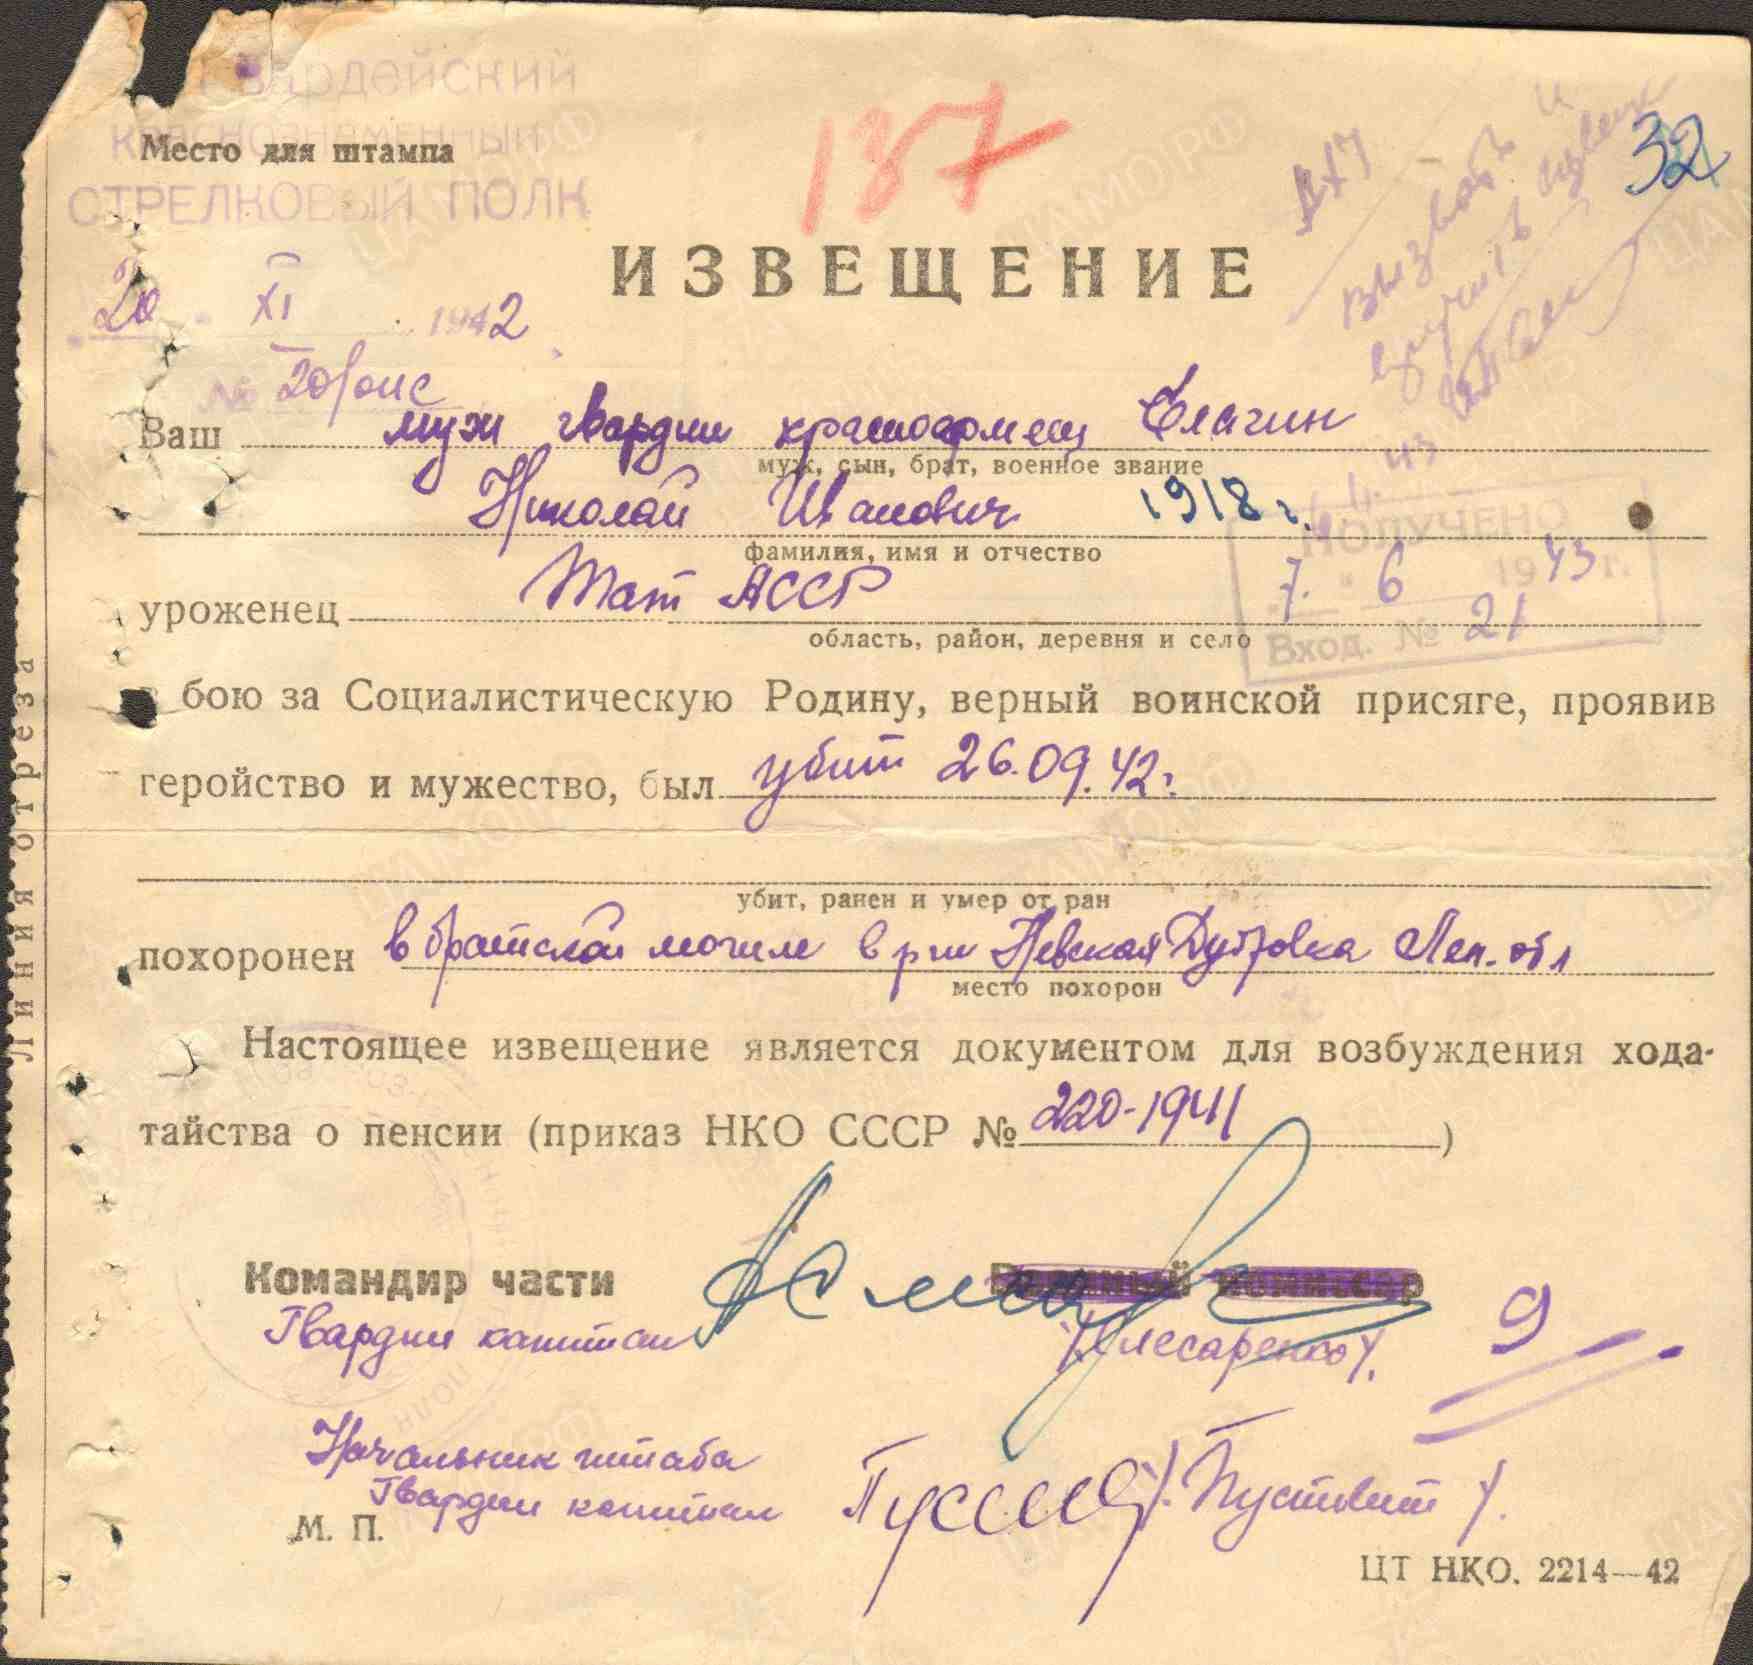 137
32
Гвардейский
Краснознаменный
Место для штампа
СТРЕЛКОВЫЙ ПОЛК
ИЗВЕЩЕНИЕ
АХЧ
вызвать и
вручить
"20" XI 1942
№ 20/опс
Ваш муж гвардии красноармеец Елагин
муж, сын, брат, военное звание
Николай Иванович 1918 г.
фамилия, имя и отчество
ПОЛУЧЕНО
7 " 6 1943 г.
Вход. № 21
уроженец Тат АССР
область, район, деревня и село
в бою за Социалистическую Родину, верный воинской присяге, проявив
геройство и мужество, был убит 26.09.42г.
убит, ранен и умер от ран
похоронен в братской могиле в р-не Невская Дубровка Лен. обл
место похорон
Настоящее извещение является документом для возбуждения хода-
тайства о пенсии (приказ НКО СССР № 220-1941)
Командир части Военный комиссар
Гвардии капитан /Слесаренко/.
9
Начальник штаба
Гвардии капитан /Пустовит/.
М. П.
ЦТ НКО. 2214—42
Линия отреза